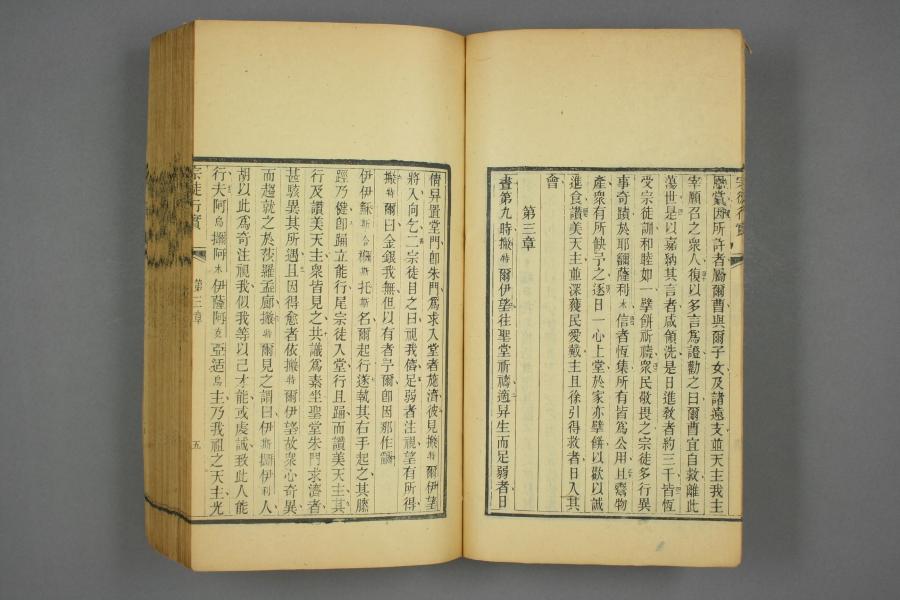 恩蓋因所許者屬爾曹與爾子女及諸遠支並天主我主
宰願召之衆人復以多言為證勸之曰爾曹宜自救離此
蕩世是以嘉納其言者咸領洗是日進教者約三千皆恆
受宗徒訓和睦如一擘餅祈禱衆民敬畏之宗徒多行異
事奇蹟於耶嚕薩利木信者恆集所有皆為公用且鬻物
產衆有所缺予之逐日一心上堂於家亦擘餅以歡以誠
進食讚美天主並深獲民愛戴主且徐引得救者日入其
會
第三章
晝第九時撇特爾伊望往聖堂祈禱適昇生而足弱者日
倩舁置堂門卽朱門為求入堂者施濟彼見撇特爾伊望
將入向乞二宗徒目之曰視我儕足弱者注視望有所得
撇特爾曰金銀我無但以有者予爾卽因那作
伊伊穌斯合利斯托斯名爾起行遂執其右手起之其膝
踁乃健卽踊立能行尾宗徒入堂行且踊而讚美天主其
行及讚美天主衆皆見之共識為素坐聖堂朱門求濟者
甚駭異其所遇且因得愈者依撇特爾伊望故衆心奇異
而趨就之於莎羅孟廊撇特爾見之謂曰伊斯
伊利人
胡以此為奇注視我似我等以己才能或虔誠致此人能
行夫阿烏
阿木伊薩阿克亞适烏主乃我祖之天主光
宗徒行實
第三章
五